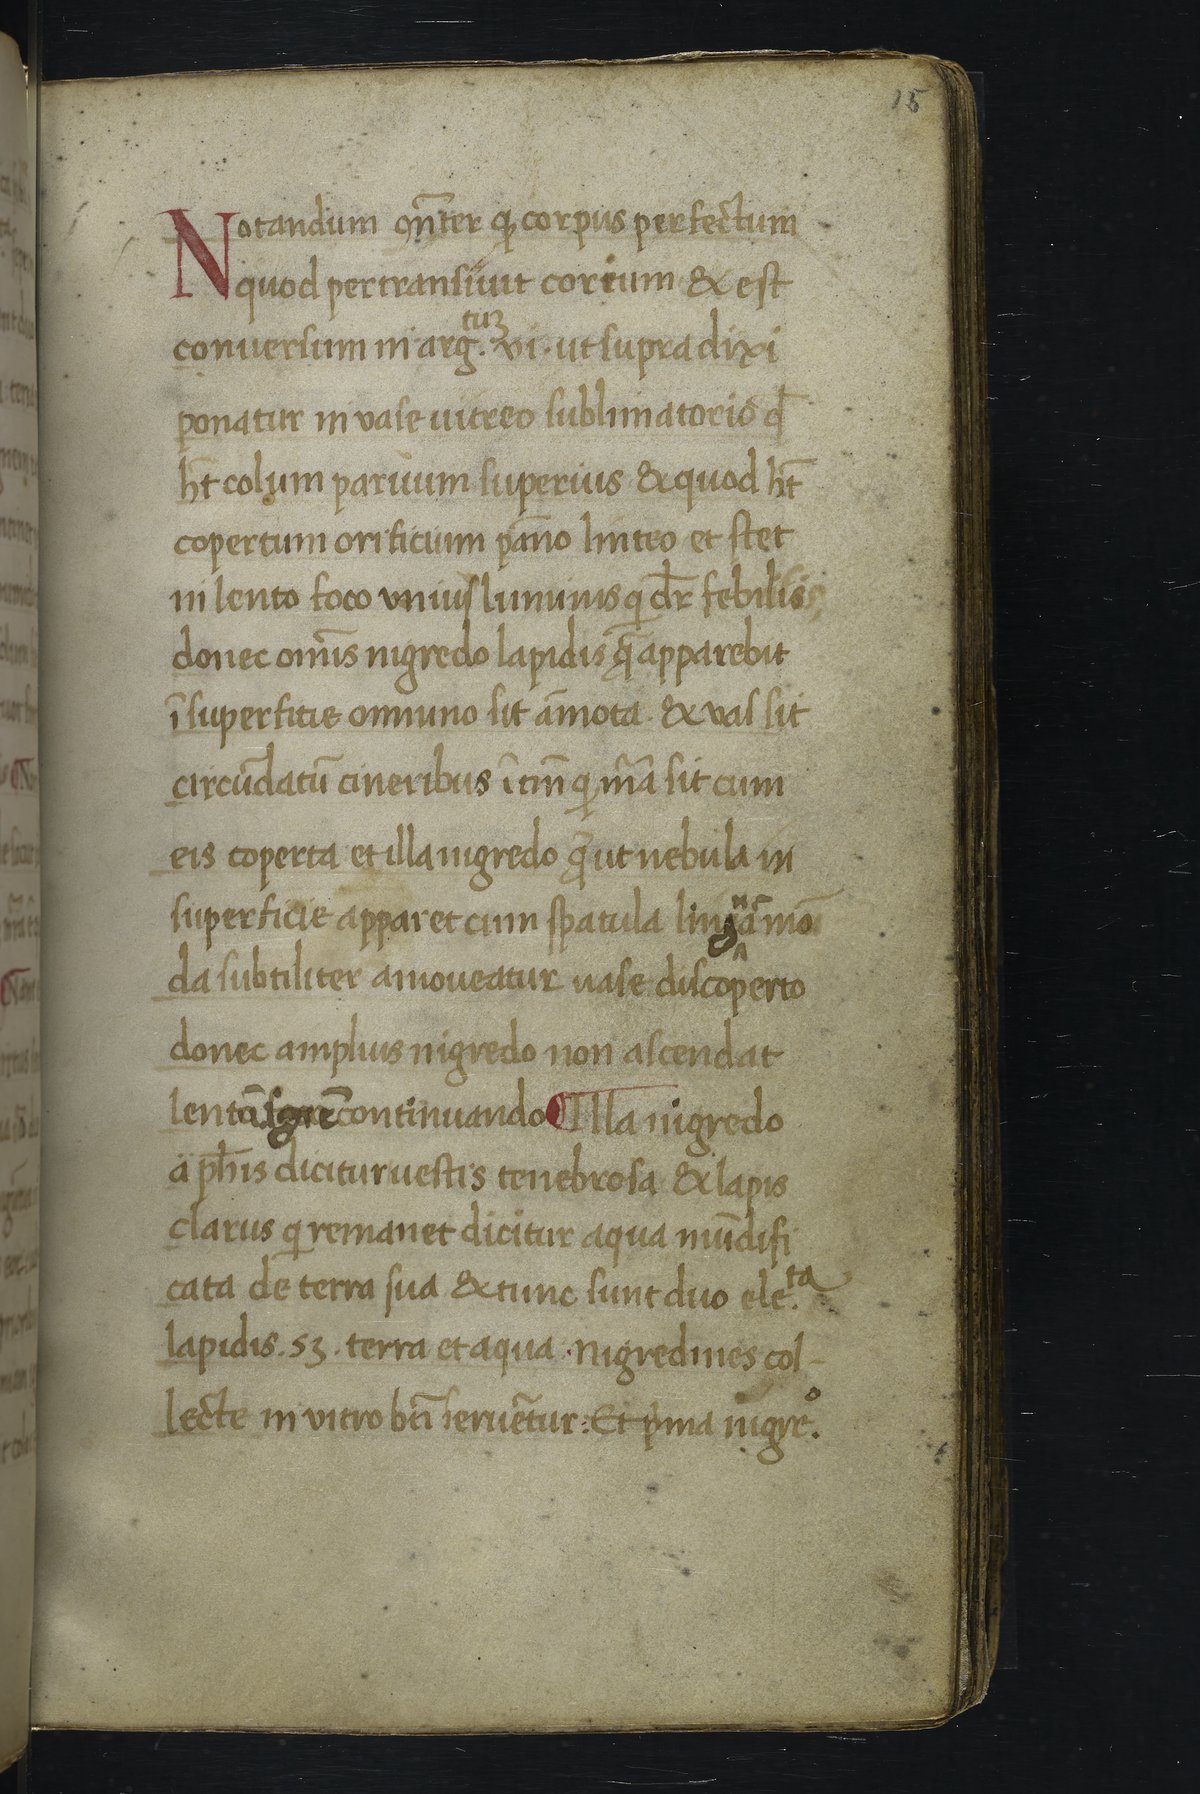 15
Notandum qn̄ter qͥ corpus perfectum
quod pertransiuit coreum & est
conuersum in arg.tuȝ vi. ut supra dixi
ponatur in vase uitreo sublimatorio qď
hn̄t colum paruum superius & quod hn̄t
copertum orificium pāno linteo et stet
in lento foco vnius luminis qͥ dr̄ febilis
donec om̄is nigredo lapidis q̄ apparebit
ī superficie omnino sit āmota & vas sit
circūdatū cineribus ītm̄ qͥ m̄a sit cum
eis coperta et illa nigredo q̄ ut nebula in
superficie apparet cum spatula mō
da subtiliter amoueatur vase discoperto
donec amplius nigredo non ascendat
lentū continuando Illa nigredo
a ph̄is dicitur uestis tenebrosa & lapis
clarus qͥ remanet dicitur aqua mūdifi
cata de terra sua & tunc sunt duo ele.ta
lapidis. sȝ. terra et aqua. nigredines col-
lecte in vitro bn̄ seruētur: Et pͥma nigre.o